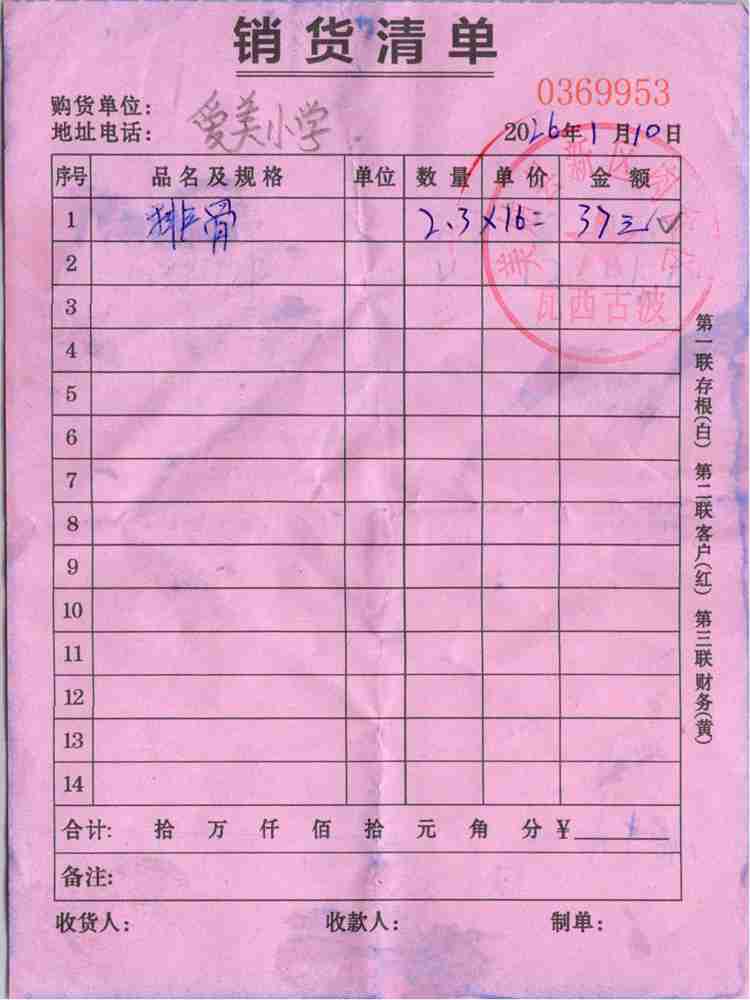 销货清单
0369953
购货单位：
地址电话： 爱美小学 2026年1月10日
序号 品名及规格 单位 数量 单价 金额
1 排骨 2.3×16= 37
2
3
瓦西古波
4
5
6
7
8
9
10
11
12
13
14
合计： 拾 万 仟 佰 拾 元 角 分 ¥
备注：
收货人： 收款人： 制单：
第一联存根(白) 第二联客户(红) 第三联财务(黄)